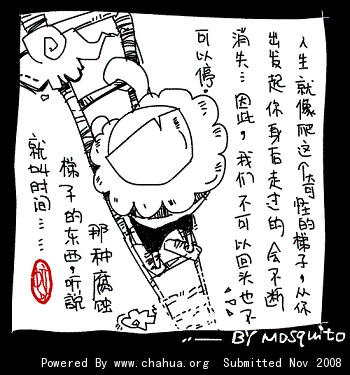 人生就像爬这个奇怪的梯子,从你
出发起你身后走过的会不断
消失…因此,我们不可以回头也不
可以停.
那种腐蚀
梯子的东西,听说
就叫时间……
BY MOSQUITO
Powered By www.chahua.org Submitted Nov 2008